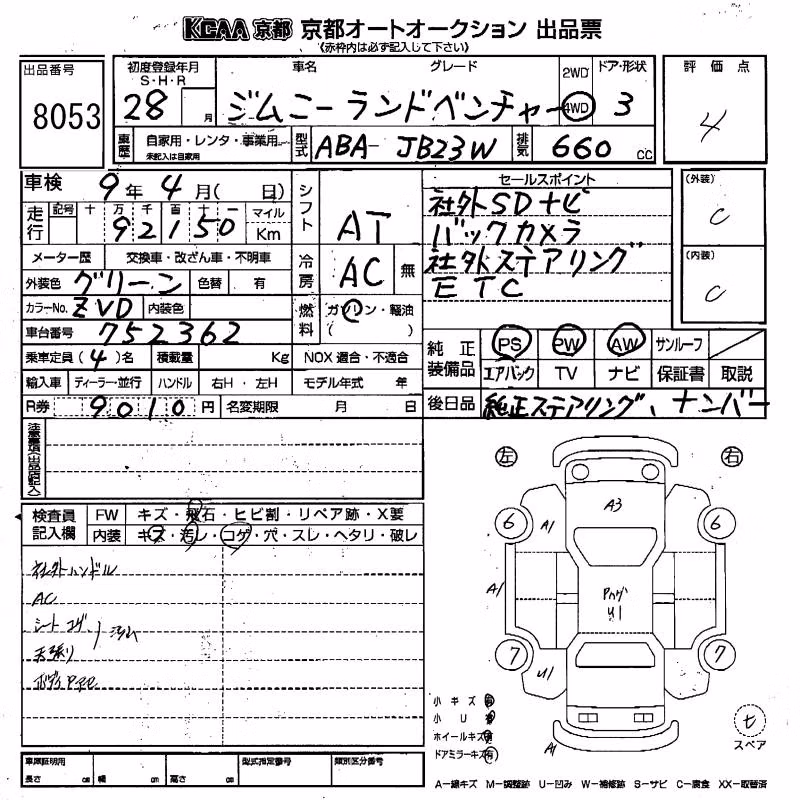 KCAA 京都 京都オートオークション 出品票
《赤枠内は必ず記入して下さい》
出品番号 8053
初度登録年月 S・H・R 28 月
車名 グレード ジムニー ランドベンチャー
2WD 4WD
ドア・形状 3
評価点 4
車歴 自家用・レンタ・事業用 未記入は自家用
型式 ABA- JB23W
排気 660 cc
車検 9年 4月( 日)
シフト AT
セールスポイント
社外SDナビ
バックカメラ
社外ステアリング
ETC
(外装) C
(内装) C
走行 記号 十 万 千 百 十 一 マイル Km
92150
メーター歴 交換車・改ざん車・不明車
冷房 AC 無
外装色 グリーン 色替 有
カラーNo. ZVD 内装色
燃料 ガソリン・軽油 ( )
車台番号 752362
乗車定員 (4)名 積載量 Kg NOX 適合・不適合
輸入車 ディーラー・並行 ハンドル 右H・左H モデル年式 年
R券 9010円 名変期限 月 日
純正装備品 PS PW AW サンルーフ
エアバック TV ナビ 保証書 取説
後日品 純正ステアリング、ナンバー
注意事項(出品店記入)
検査員記入欄 FW キズ・飛石・ヒビ割・リペア跡・X要
内装 キズ・汚レ・コゲ・穴・スレ・ヘタリ・破レ
社外ハンドル
AC
シート コゲ
天張り
左 右
A3
6 A1 6
A1
U1
7 U1 7
A1
小キズ 有
小U 有
ホイールキズ 有
ドアミラーキズ 有
スペア
車庫証明用 長さ cm 幅 cm 高さ cm
型式指定番号 類別区分番号
A−線キズ M−調整跡 U−凹み W−補修跡 S−サビ C−腐食 XX−取替済